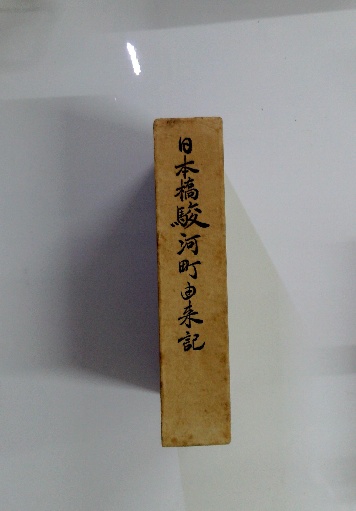 日本橋駿河町由来記